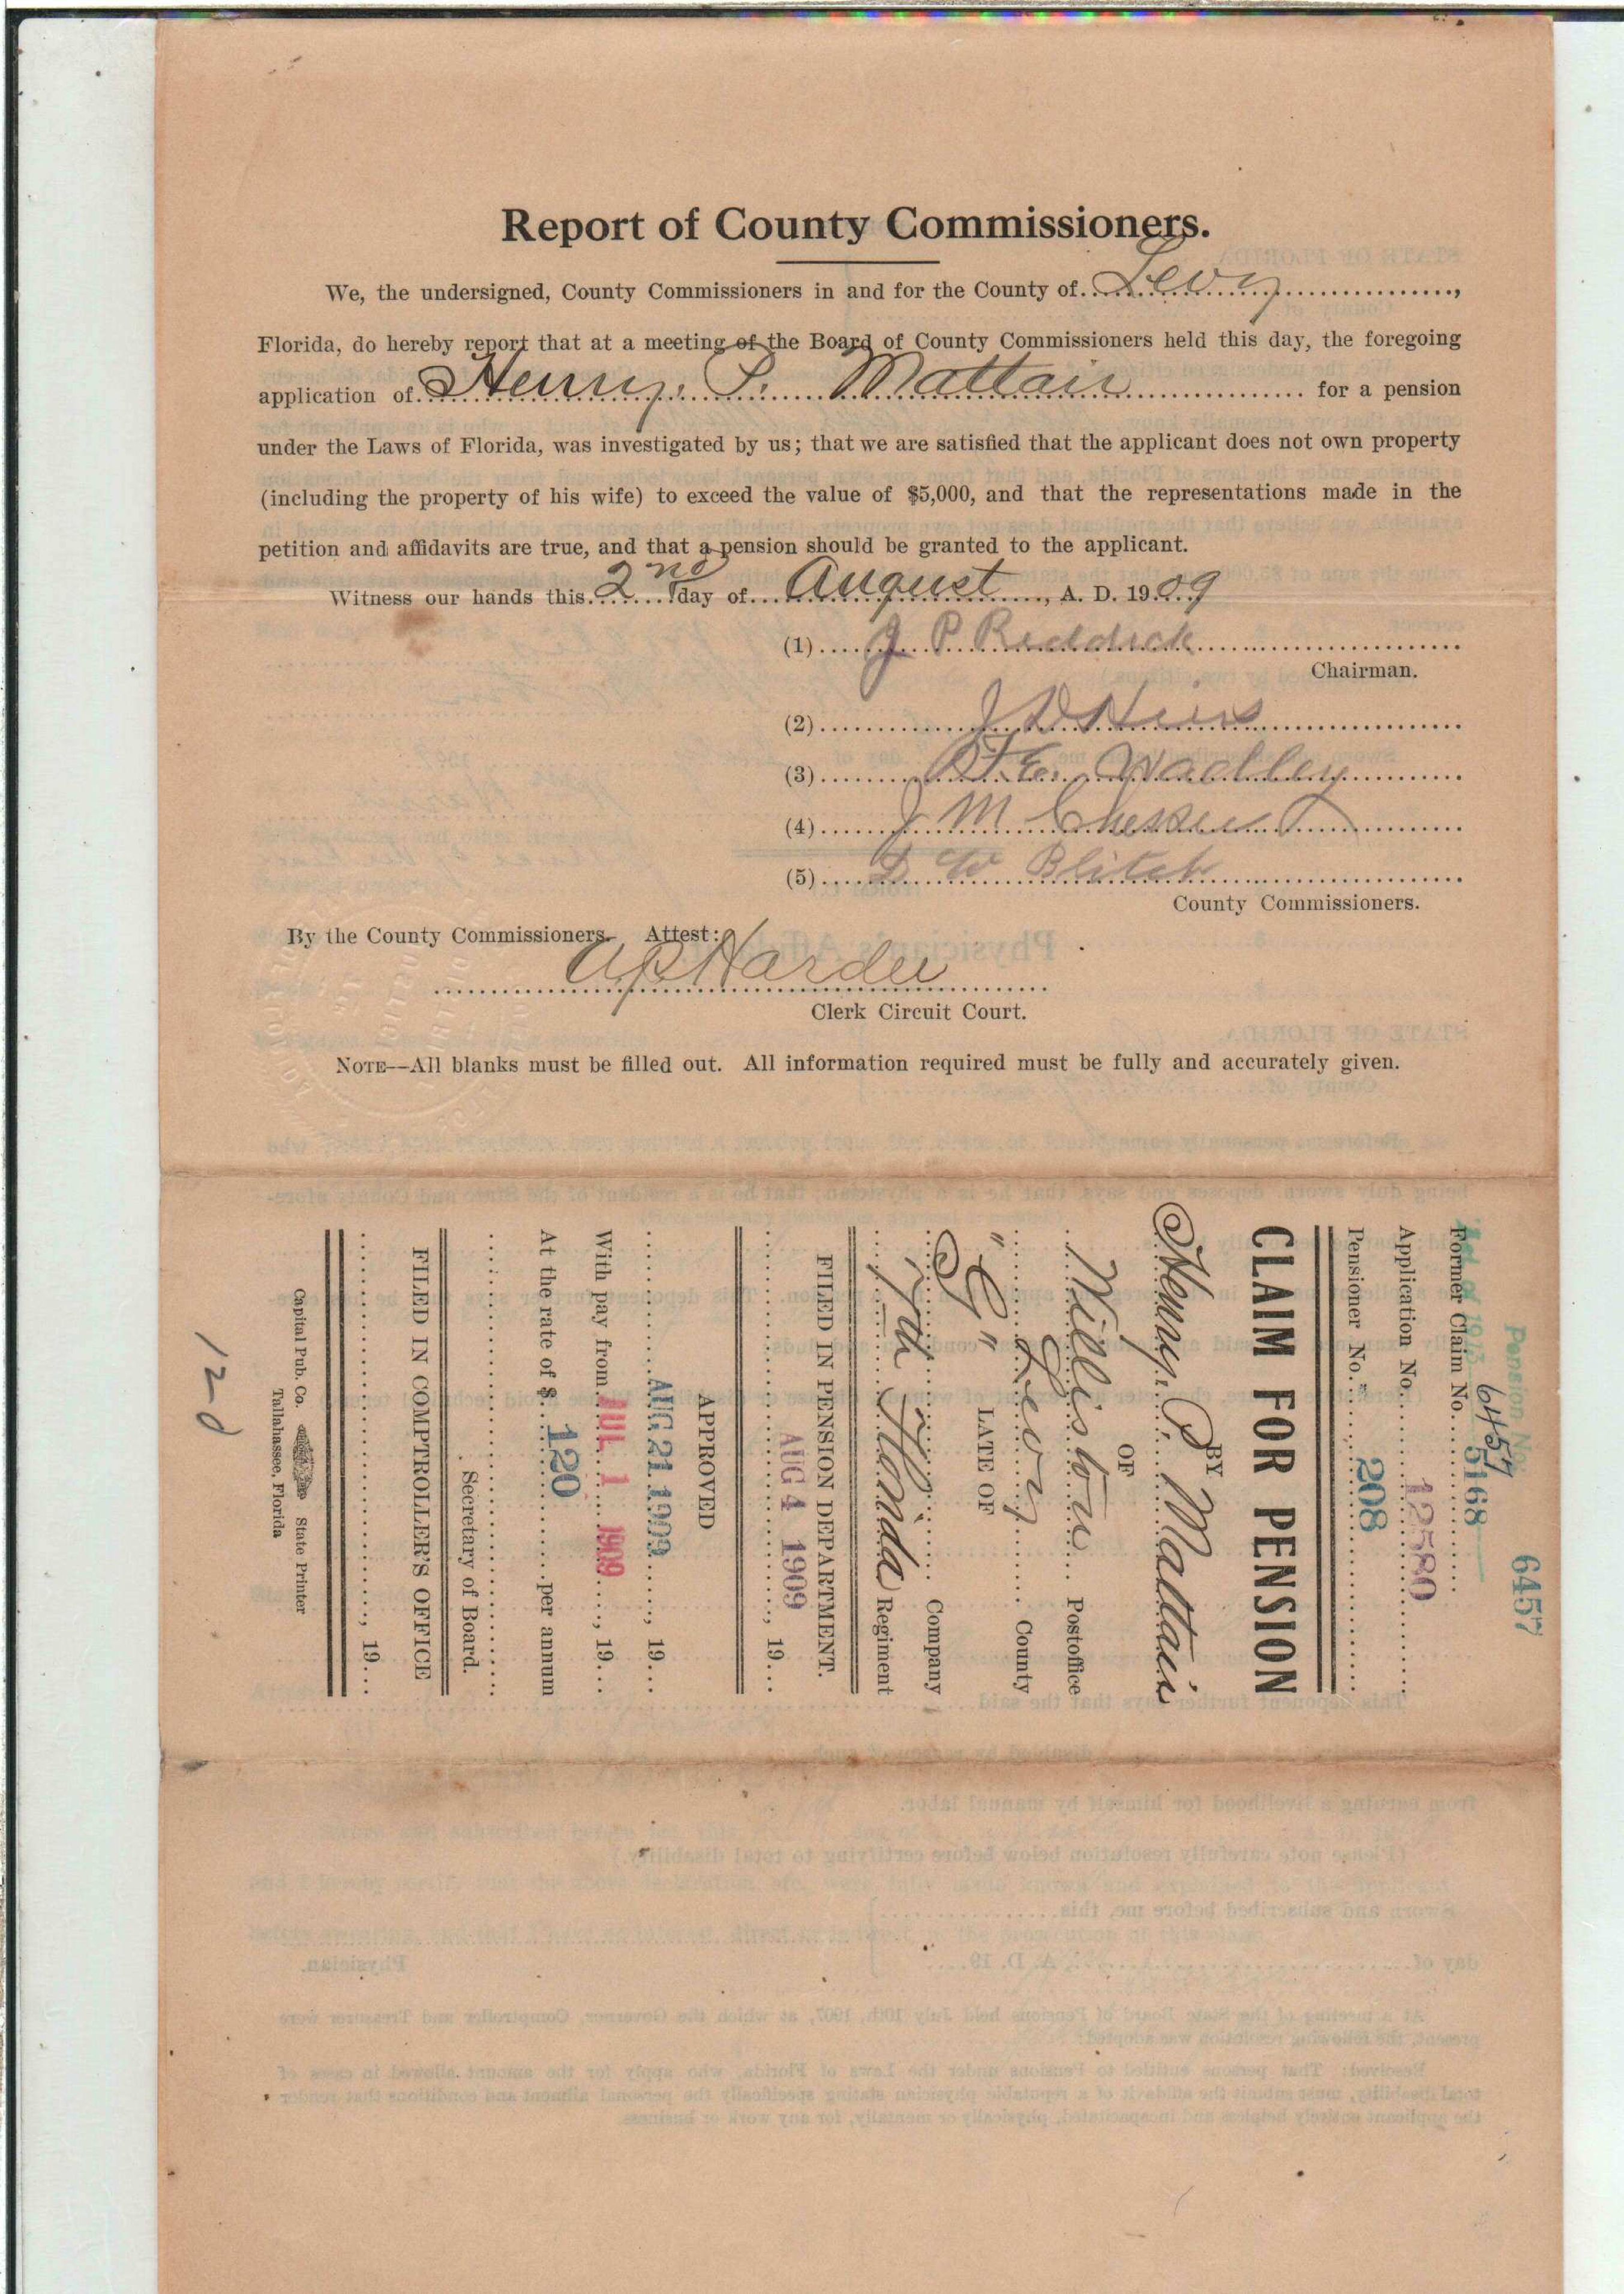 Report of County Commissioners.
We, the undersigned, County Commissioners in and for the County of Levy,
Florida, do hereby report that at a meeting of the Board of County Commissioners held this day, the foregoing
application of Henry. P. Mattair for a pension
under the Laws of Florida, was investigated by us; that we are satisfied that the applicant does not own property
(including the property of his wife) to exceed the value of $5,000, and that the representations made in the
petition and affidavits are true, and that a pension should be granted to the applicant.
Witness our hands this 2nd day of August, A. D. 1909
(1) J P Reddick
Chairman.
(2)
(3) Wadley
(4) J M Chesser
(5) D W Blitch
County Commissioners.
By the County Commissioners. Attest:
Hardee
Clerk Circuit Court.
NOTE--All blanks must be filled out. All information required must be fully and accurately given.
Pension No. 6457
6457
Former Claim No. 5168
Application No. 12580
Pensioner No. 208
CLAIM FOR PENSION
BY
Henry. P. Mattair
OF
Williston Postoffice
Levy County
LATE OF
"G" Company
7th Florida Regiment
FILED IN PENSION DEPARTMENT.
AUG 4 1909, 19...
APPROVED
AUG 21 1909, 19...
With pay from JUL 1 1909, 19...
At the rate of $ 120 per annum
Secretary of Board.
FILED IN COMPTROLLER'S OFFICE
, 19...
Capital Pub. Co. State Printer
Tallahassee, Florida